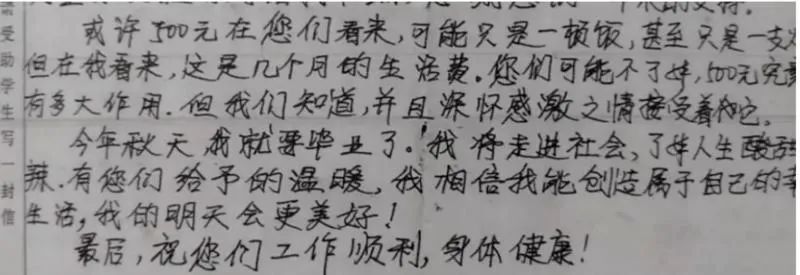 受助学生写一封信
的支持.
或许500元在您们看来,可能只是一顿饭,甚至只是一支
但在我看来,这是几个月的生活费.您们可能不了解,500元究竟
有多大作用.但我们知道,并且深怀感激之情接受着它.
今年秋天,我就要毕业了.我将走进社会,了解人生酸甜
辣.有您们给予的温暖,我相信我能创造属于自己的幸
生活,我的明天会更美好!
最后,祝您们工作顺利,身体健康!